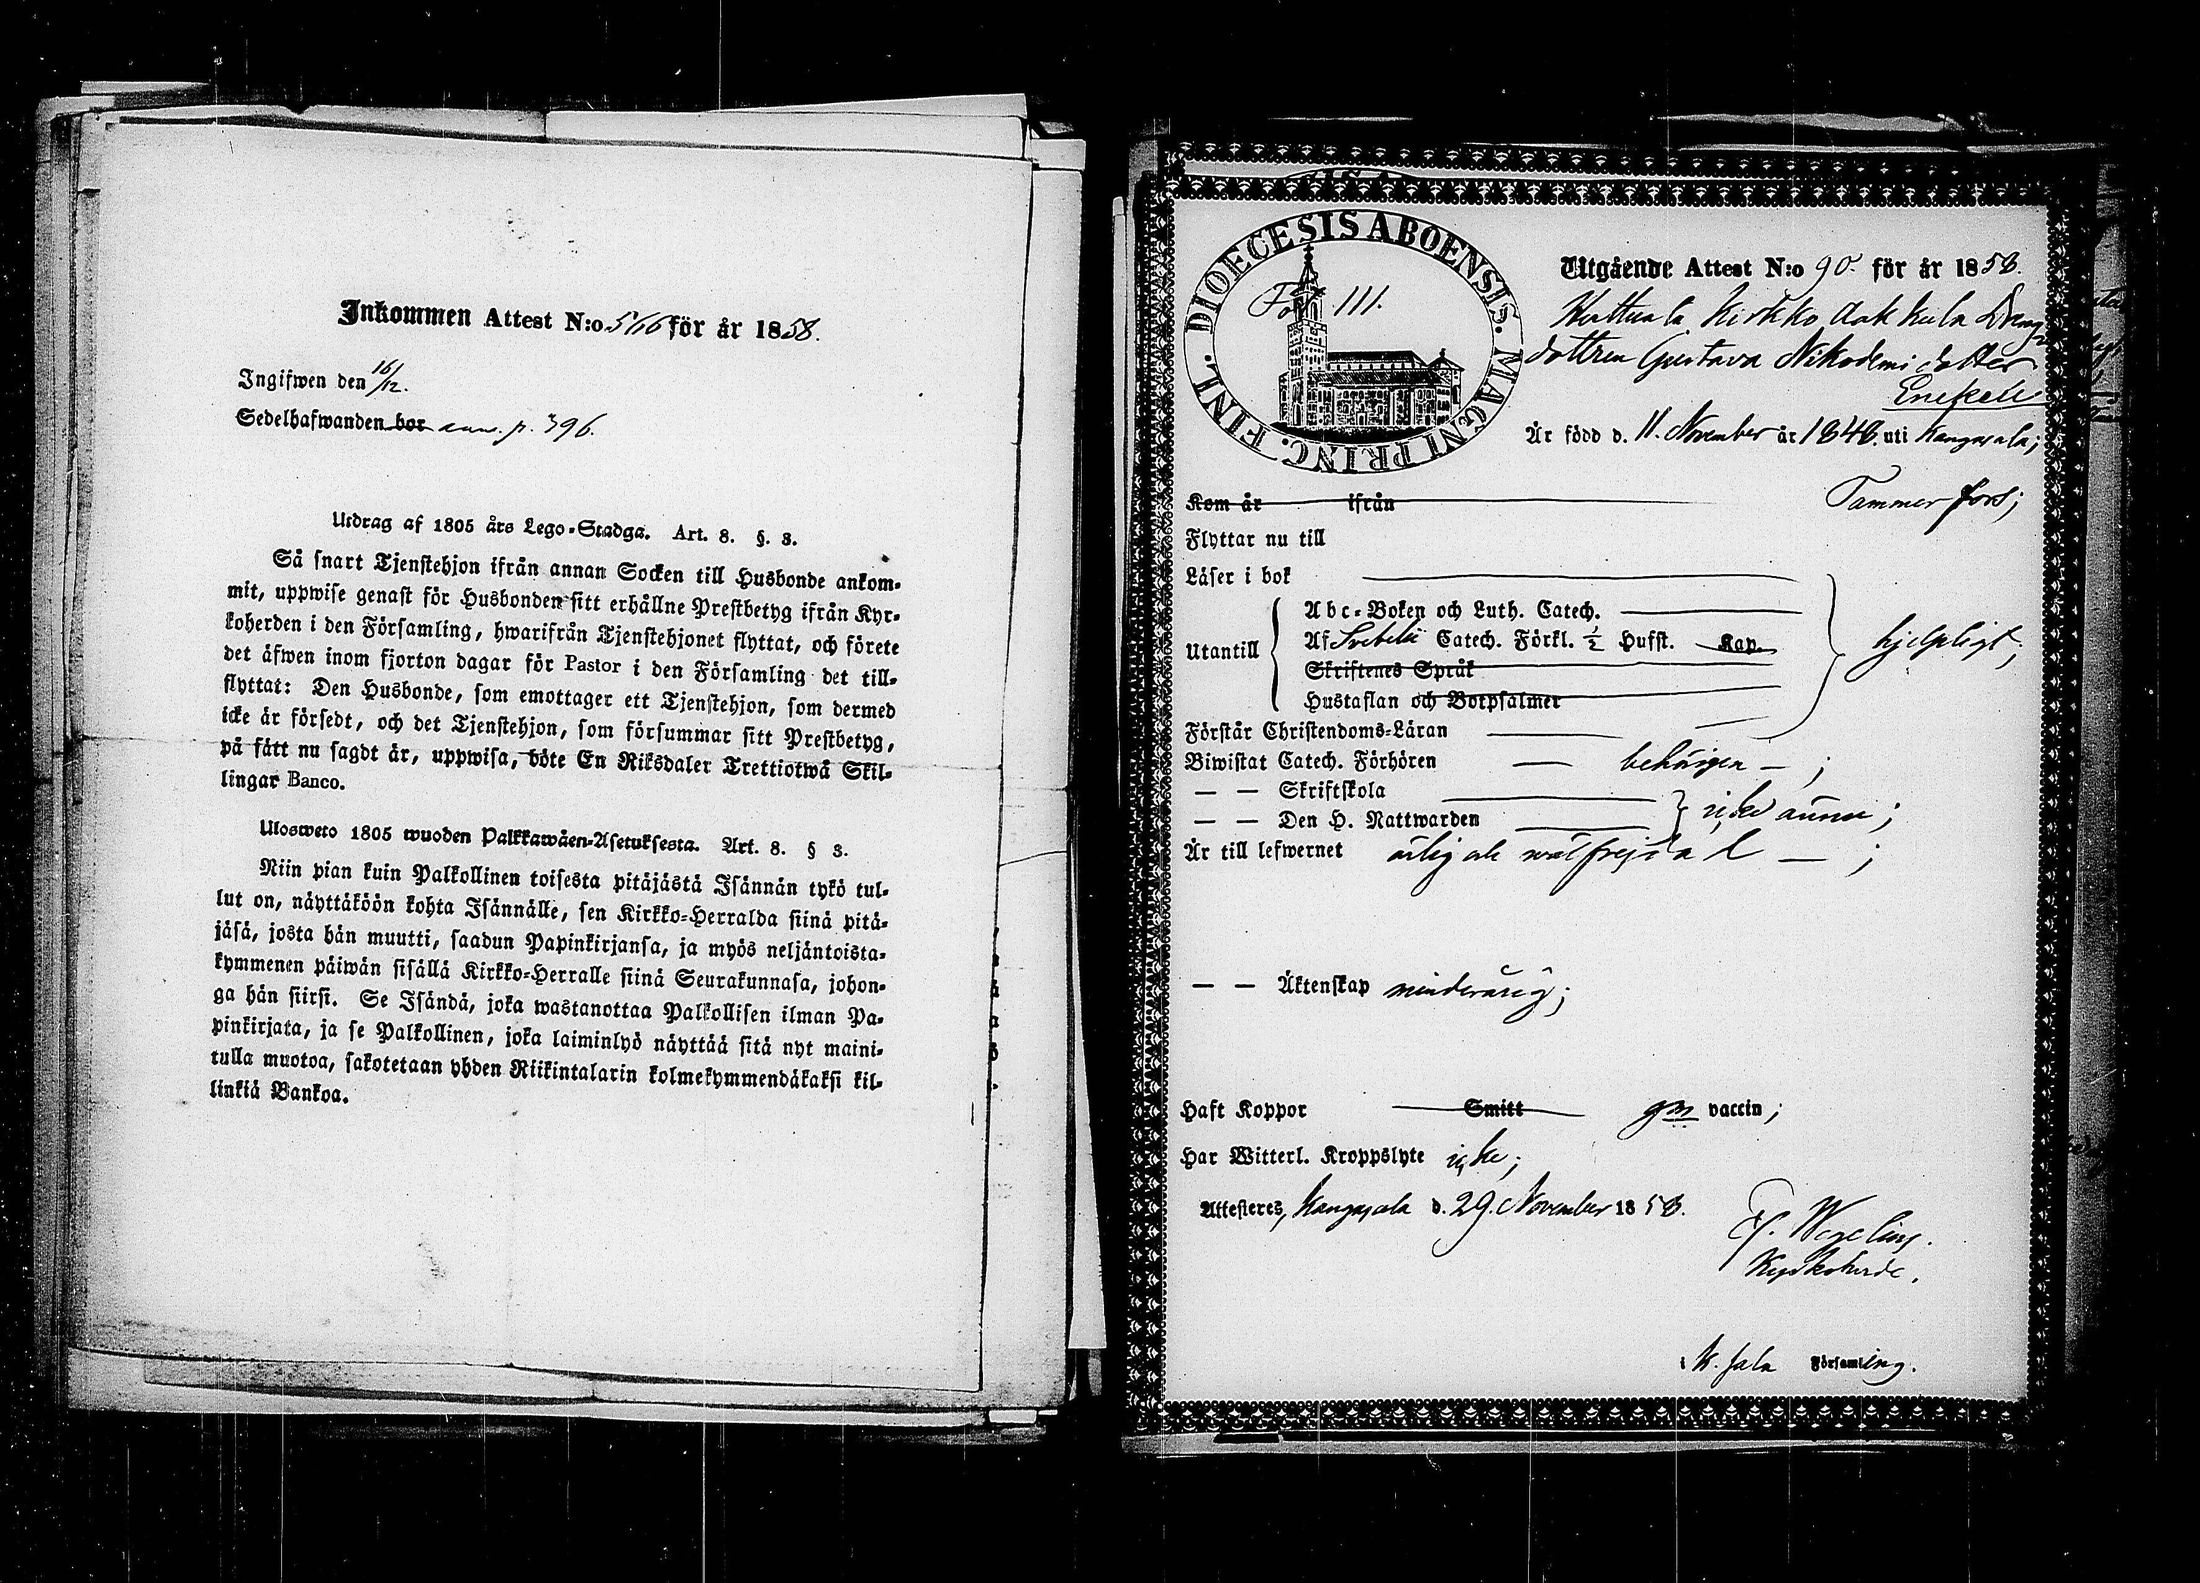 Inkommen Attest N:o 566 för år 1858.
Ingifwen den 16/12.
Sedelhafwanden bor ann. p. 396.
Utdrag af 1805 års Lego-Stadga. Art. 8. §. 3.
Så snart Tjenstehjon ifrån annan Socken till Husbonde ankom-
mit, uppwise genast för Husbonden sitt erhållne Prestbetyg ifrån Kyr-
koherden i den Församling, hwarifrån Tjenstehjonet flyttat, och förete
det äfwen inom fjorton dagar för Pastor i den Församling det till-
flyttat: Den Husbonde, som emottager ett Tjenstehjon, som dermed
icke är försedt, och det Tjenstehjon, som försummar sitt Prestbetyg,
på sätt nu sagdt är, uppwisa, böte En Riksdaler Trettiotwå Skil-
lingar Banco.
Ulosweto 1805 wuoden Palkkawäen-Asetuksesta. Art. 8. § 3.
Niin pian kuin Palkollinen toisesta pitäjästä Isännän tykö tul-
lut on, näyttäköön kohta Isännälle, sen Kirkko-Herralda siinä pitä-
jäsä, josta hän muutti, saadun Papinkirjansa, ja myös neljäntoista-
kymmenen päiwän sisällä Kirkko-Herralle siinä Seurakunnasa, johon-
ga hän siirsi. Se Isändä, joka wastanottaa Palkollisen ilman Pa-
pinkirjata, ja se Palkollinen, joka laiminlyö näyttää sitä nyt maini-
tulla muotoa, sakotetaan yhden Riikintalarin kolmekymmendäkaksi kil-
linkiä Bankoa.
DIOECESIS ABOENSIS. MAGNI PRINC. FINL.
Fol. 111.
Utgående Attest N:o 90. för år 1858.
Kirkko Aakkula Dreng
dottren Gustava Nikodemi dotter
Enefeldt
Är född d. 11. November år 1848. uti Kangasala;
Kom år ifrån
Tammerfors;
Flyttar nu till
Läser i bok
Utantill
Abc-Boken och Luth. Catech.
Af Svebelii Catech. Förkl. ½ Hufst. Kap.
Skriftenes Språk
Hustaflan och Botpsalmer
hjelpligt;
Förstår Christendoms-Läran
Biwistat Catech. Förhören — behörigen — ;
— — Skriftskola
— — Den H. Nattwarden
icke ännu;
Är till lefwernet ärlig och wälfrejdad — ;
— — Äktenskap minderårig;
Haft Koppor Smitt gm vaccin;
Har Witterl. Kroppslyte icke;
Attesteres, Kangasala d. 29. November 1858.
Wegelius.
Kyrkoherde.
i K.sala Församling.